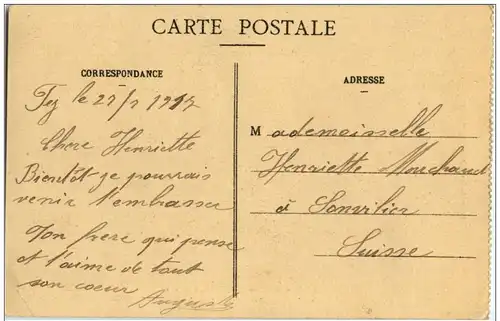 CARTE POSTALE
CORRESPONDANCE
Fez le 27/2 1917
Chère Henriette
Bientôt je pourrais
venir t'embrasser
Ton frère qui pense
et t'aime de tout
son coeur
Auguste
ADRESSE
Mademoiselle
Henriette Marchand
à Sonvilier
Suisse